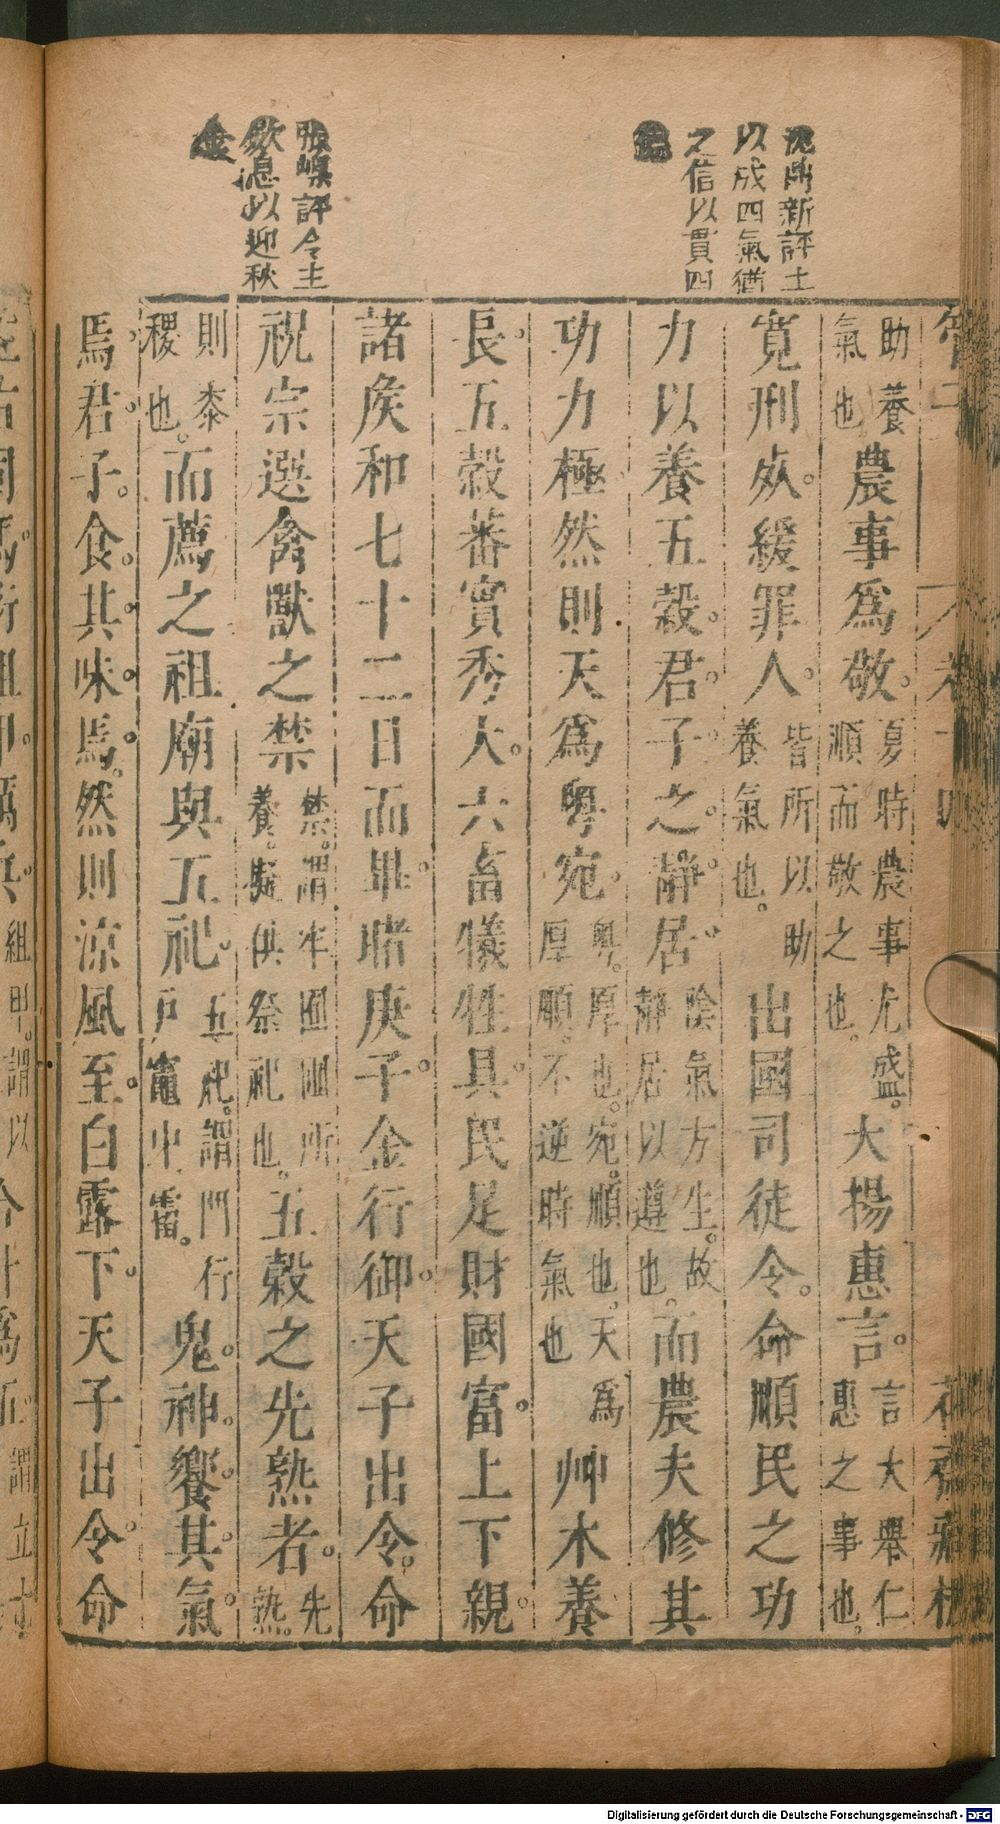 沈鼎新評土
以成四氣猶
之信以貫四
張嵲評令主
斂息以迎秋
金
助養
氣也
農事爲敬
夏時農事尤盛
順而敬之也
大揚惠言
言大舉仁
惠之事也
寬刑死緩罪人
皆所以助
養氣也
出國司徒令命順民之功
力以養五穀君子之靜居
陰氣方生故
靜居以遵也
而農夫修其
功力極然則天爲粤宛
粤厚也宛順也天爲
厚順不逆時氣也
艸木養
長五穀蕃實秀大六畜犧牲具民足財國富上下親
諸矦和七十二日而畢睹庚子金行御天子出令命
祝宗選禽獸之禁
禁謂牢圈圃所
養擬供祭祀也
五穀之先熟者
先
熟
則黍
稷也
而薦之祖廟與五祀
五祀謂門行
戶竈中霤
鬼神饗其氣
焉君子食其味焉然則涼風至白露下天子出令命
組甲謂以
謂立
Digitalisierung gefördert durch die Deutsche Forschungsgemeinschaft - DFG